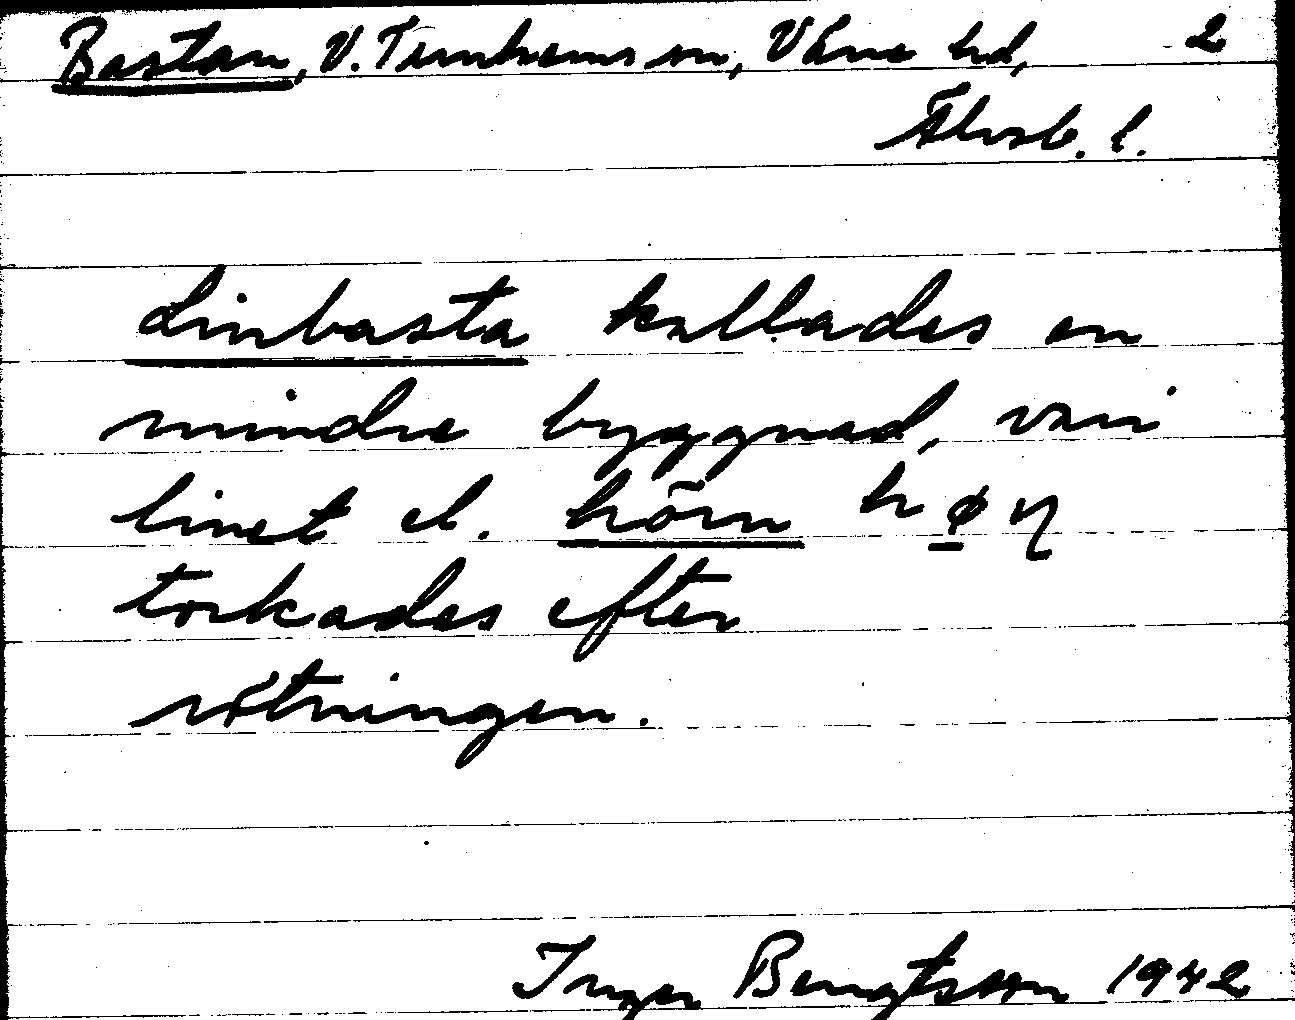 Bastan, V. Tunhems sn, Väne hd, 2
Älvsb. l.
Linbasta kallades en
mindre byggnad, vari
linet el. hörn høṇ
torkades efter
rötningen.
Inger Bengtsson 1942